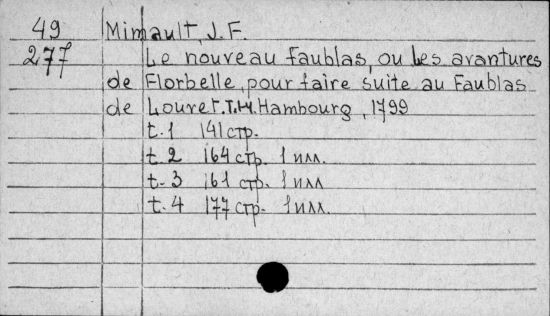 49 Mimault, J. F.
277 Le nouveau Faublas, ou Les avantures
de Florbelle, pour faire suite au Faublas
de Louvet. T. I-IV. Hambourg, 1799
t. 1 141 стр.
t. 2 164 стр. 1 илл.
t. 3 161 стр. 1 илл
t. 4 177 стр. 1 илл.